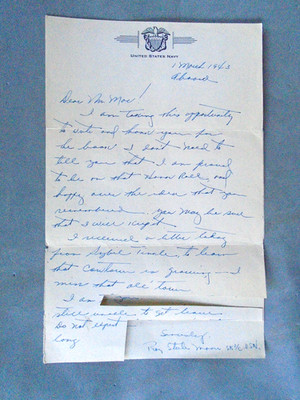 UNITED STATES NAVY
1 March 1943
Aboard
Dear Mr. Mac!
I am taking this opportunity
to write and thank you for
the book. I don't need to
tell you that I am proud
to be on that Honor Roll and
happy over the idea that you
remembered. You may be sure
that I will
I received a letter today
from to learn
that is growing - I
miss that old town
I am
still unable to get leave
Do not expect
long.
Sincerely
Roy